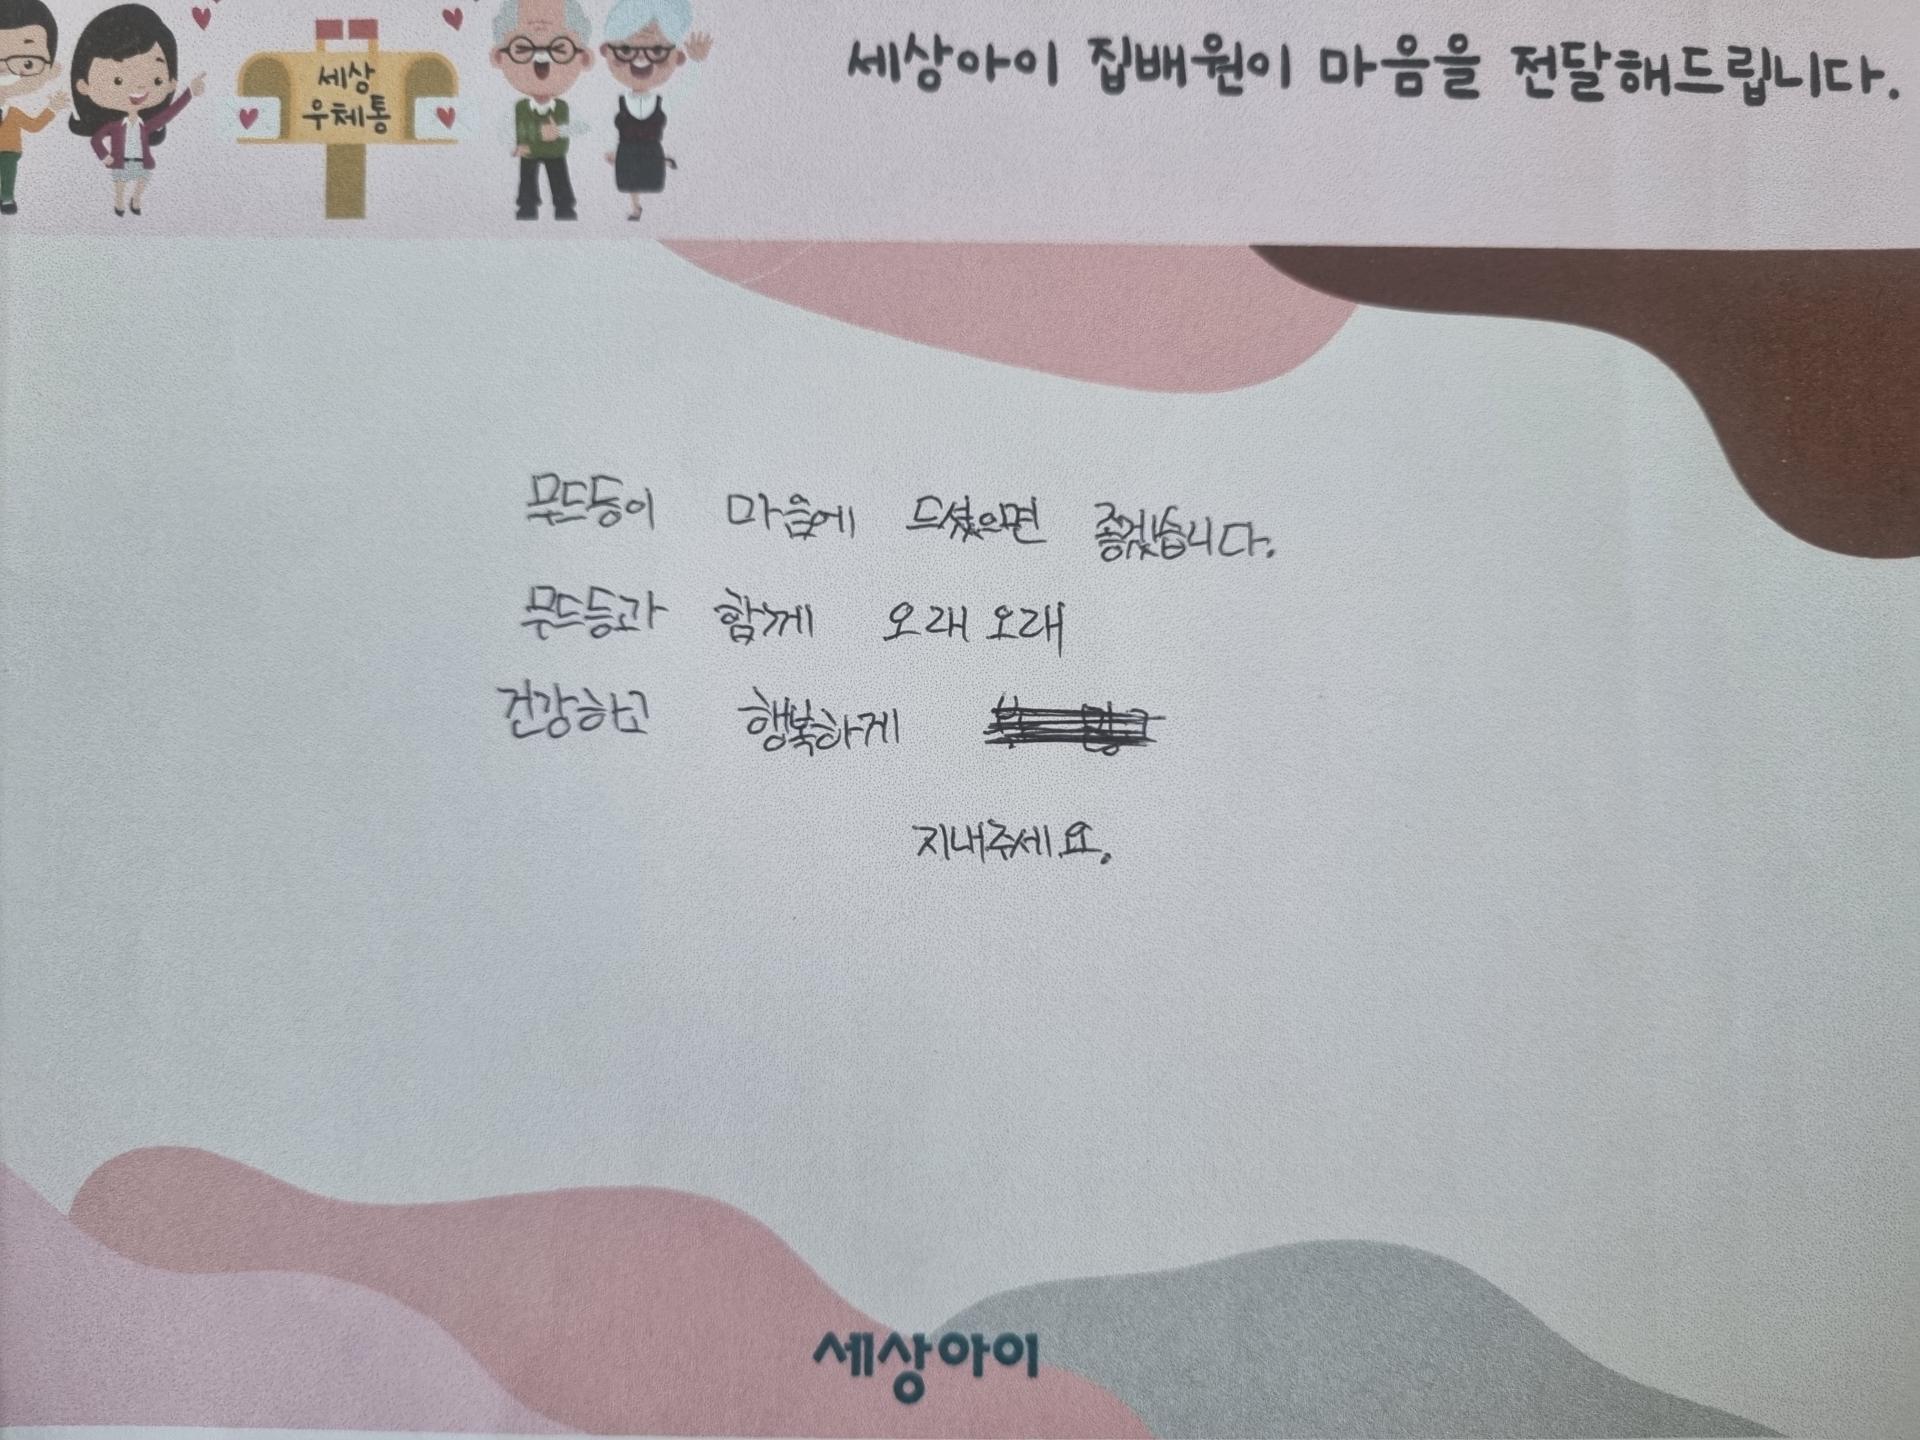 세상아이 집배원이 마음을 전달해드립니다.
세상
우체통
무드등이 마음에 드셨으면 좋겠습니다.
무드등과 함께 오래 오래
건강하고 행복하게
지내주세요.
세상아이